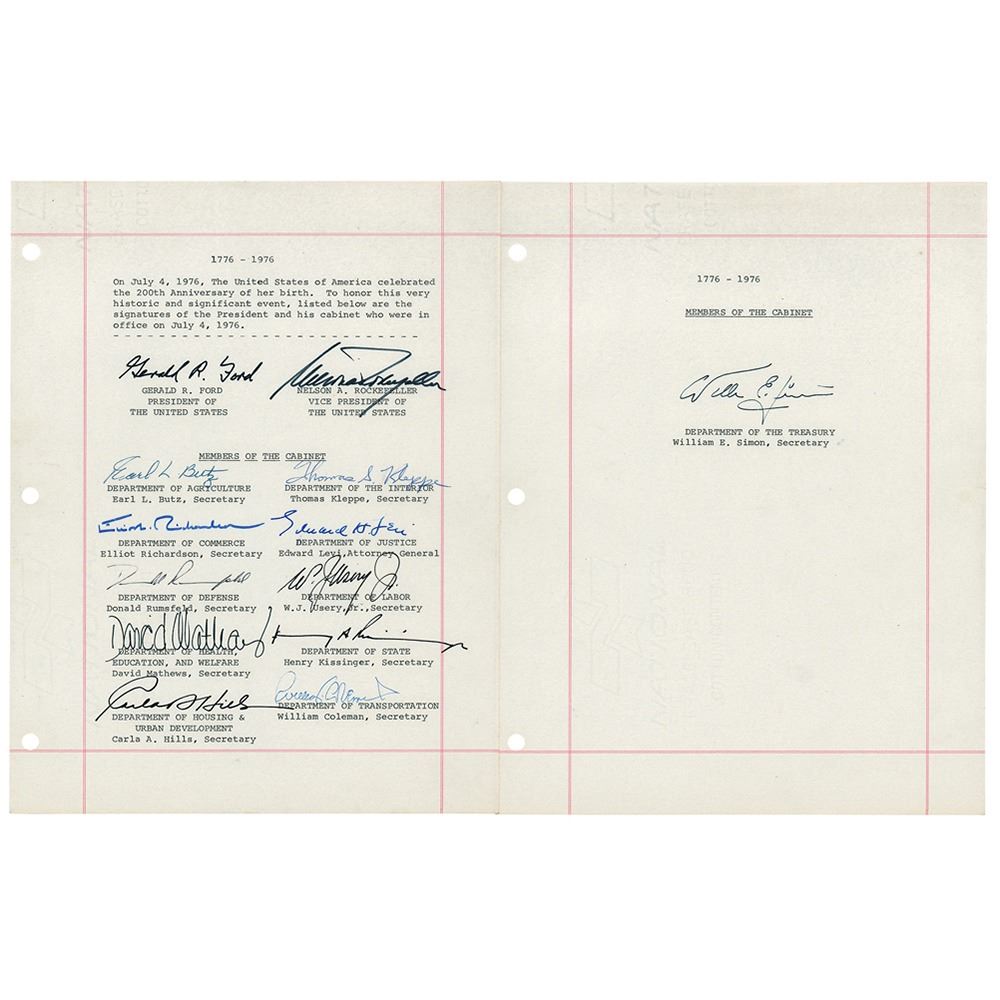 1776 - 1976
On July 4, 1976, The United States of America celebrated
the 200th Anniversary of her birth. To honor this very
historic and significant event, listed below are the
signatures of the President and his cabinet who were in
office on July 4, 1976.
Gerald R. Ford
GERALD R. FORD
PRESIDENT OF
THE UNITED STATES
Nelson A Rockefeller
NELSON A. ROCKEFELLER
VICE PRESIDENT OF
THE UNITED STATES
MEMBERS OF THE CABINET
Earl L Butz
DEPARTMENT OF AGRICULTURE
Earl L. Butz, Secretary
Thomas S Kleppe
DEPARTMENT OF THE INTERIOR
Thomas Kleppe, Secretary
Elliot L. Richardson
DEPARTMENT OF COMMERCE
Elliot Richardson, Secretary
Edward H. Levi
DEPARTMENT OF JUSTICE
Edward Levi,Attorney General
Donald Rumsfeld
DEPARTMENT OF DEFENSE
Donald Rumsfeld, Secretary
W. J. Usery Jr.
DEPARTMENT OF LABOR
W.J. Usery,Jr.,Secretary
David Mathews
DEPARTMENT OF HEALTH,
EDUCATION, AND WELFARE
David Mathews, Secretary
Henry A Kissinger
DEPARTMENT OF STATE
Henry Kissinger, Secretary
Carla A Hills
DEPARTMENT OF HOUSING &
URBAN DEVELOPMENT
Carla A. Hills, Secretary
William T Coleman Jr
DEPARTMENT OF TRANSPORTATION
William Coleman, Secretary
1776 - 1976
MEMBERS OF THE CABINET
William E. Simon
DEPARTMENT OF THE TREASURY
William E. Simon, Secretary